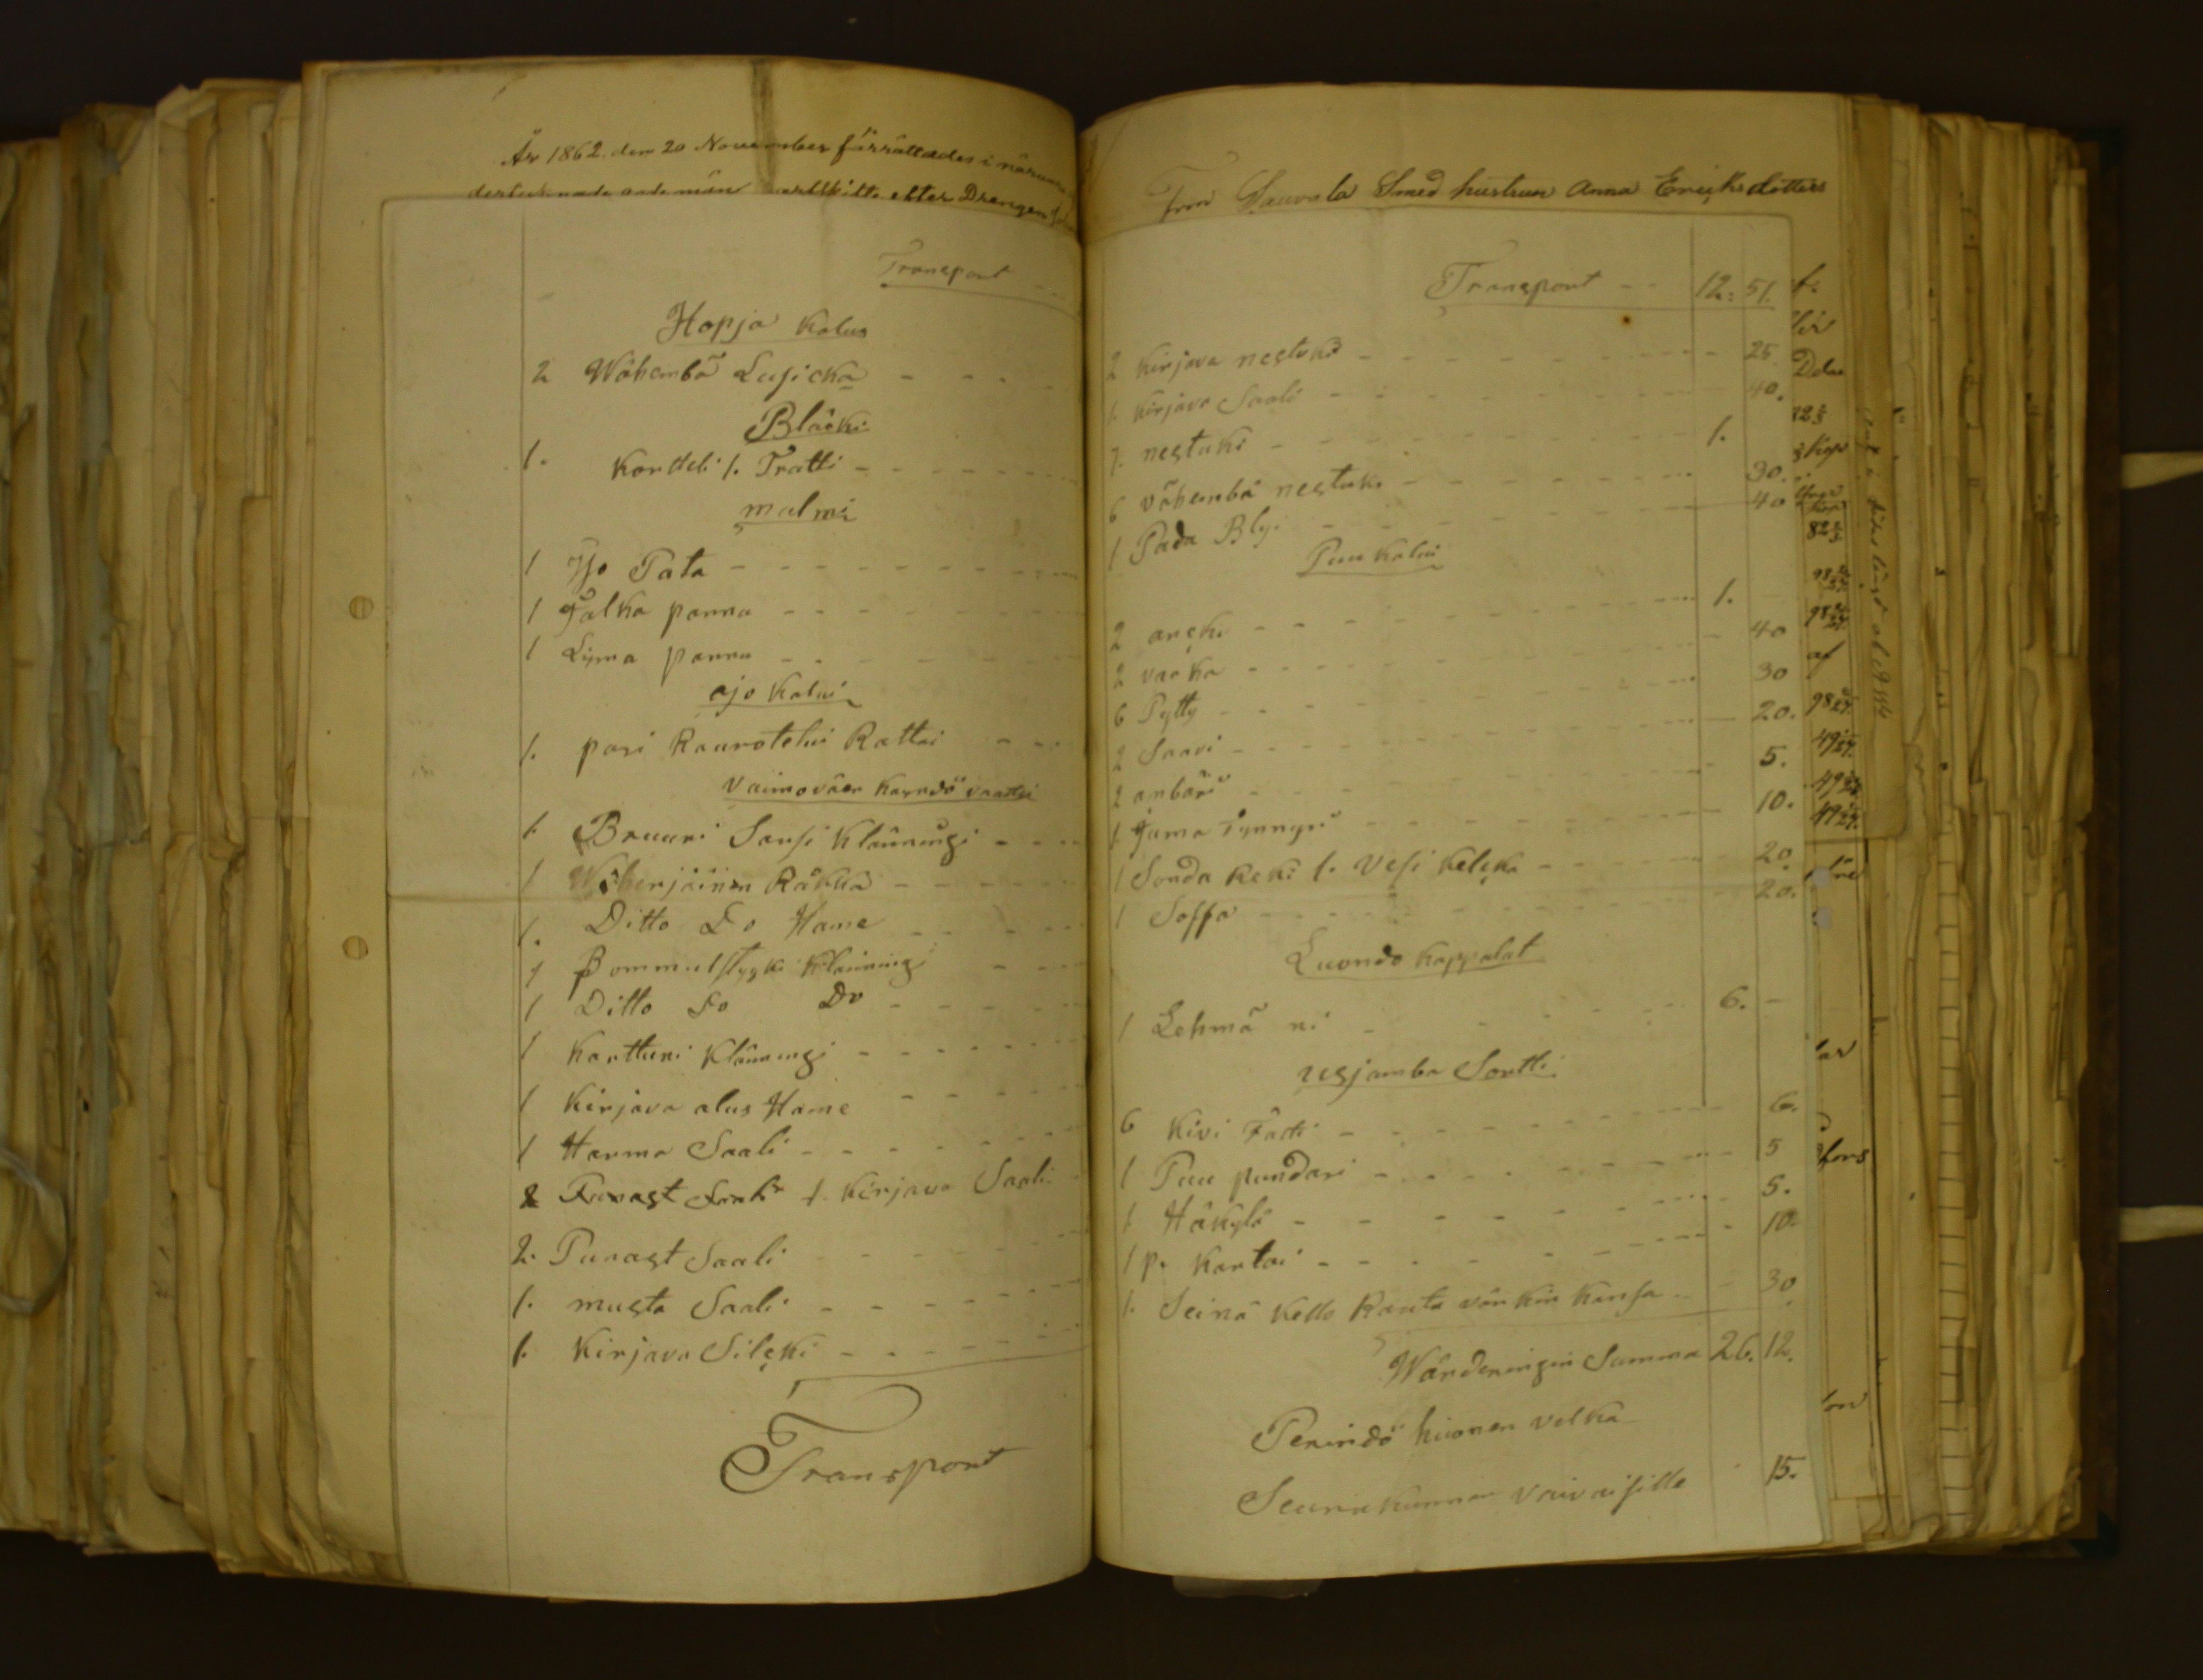 År 1862 den 20 November förrättades i närvaro
Drengen
Transport
Hopja kalus
2 Wähembä Lusicka
Bläcki
1. kortteli 1. Tratti
malmi
1 Iso Pata
1 Jalka panna
1 Lijma panna
ajo kalui
1. pari Raurotelui Rattai
vaimoväen käyndö vaattei
1. Bruuni Sarsi Kläningi
1 Räkkä
1. Ditto Do Hame
1 Bommulstygki Kläningi
1 Ditto Do Do
1 karttuni Kläningi
1 Kirjava alus Hame
1 Harma Saali
1 Kirjava Saali
2. Punast Saali
1. musta Saali
1. Kirjava Silcki
Transport
Från Sauvala Smed hustrun Anna Eriksdotter
Transport 12: 51.
2 kirjava nestuki 25
1. kirjava Saali 40.
7. nestuki 1.
6 vähembä nestuki 30.
1 Pada Blyi 40
Puu kalui
2 arcki 1.
2 vaaka 40
6 Pytty 30
2 Saavi 20.
2 anbäri 5.
1. Juma Tynnyri 10.
1 Sonda keki 1. Vesi kelcka 20
1 Soffa 20.
Luondo kappalat
1 Lehmä ni 6. -
usjamba Sortti
6 kivi Fati 6.
1 Puu pundari 5
1 Häkylä 5.
1 p. kartai 10.
1. Seinä kello Rauta värkin kansa 30
Wärderingin Summa 26. 12.
Perindö huonen velka
Seurakunnan vaivaisille 15.